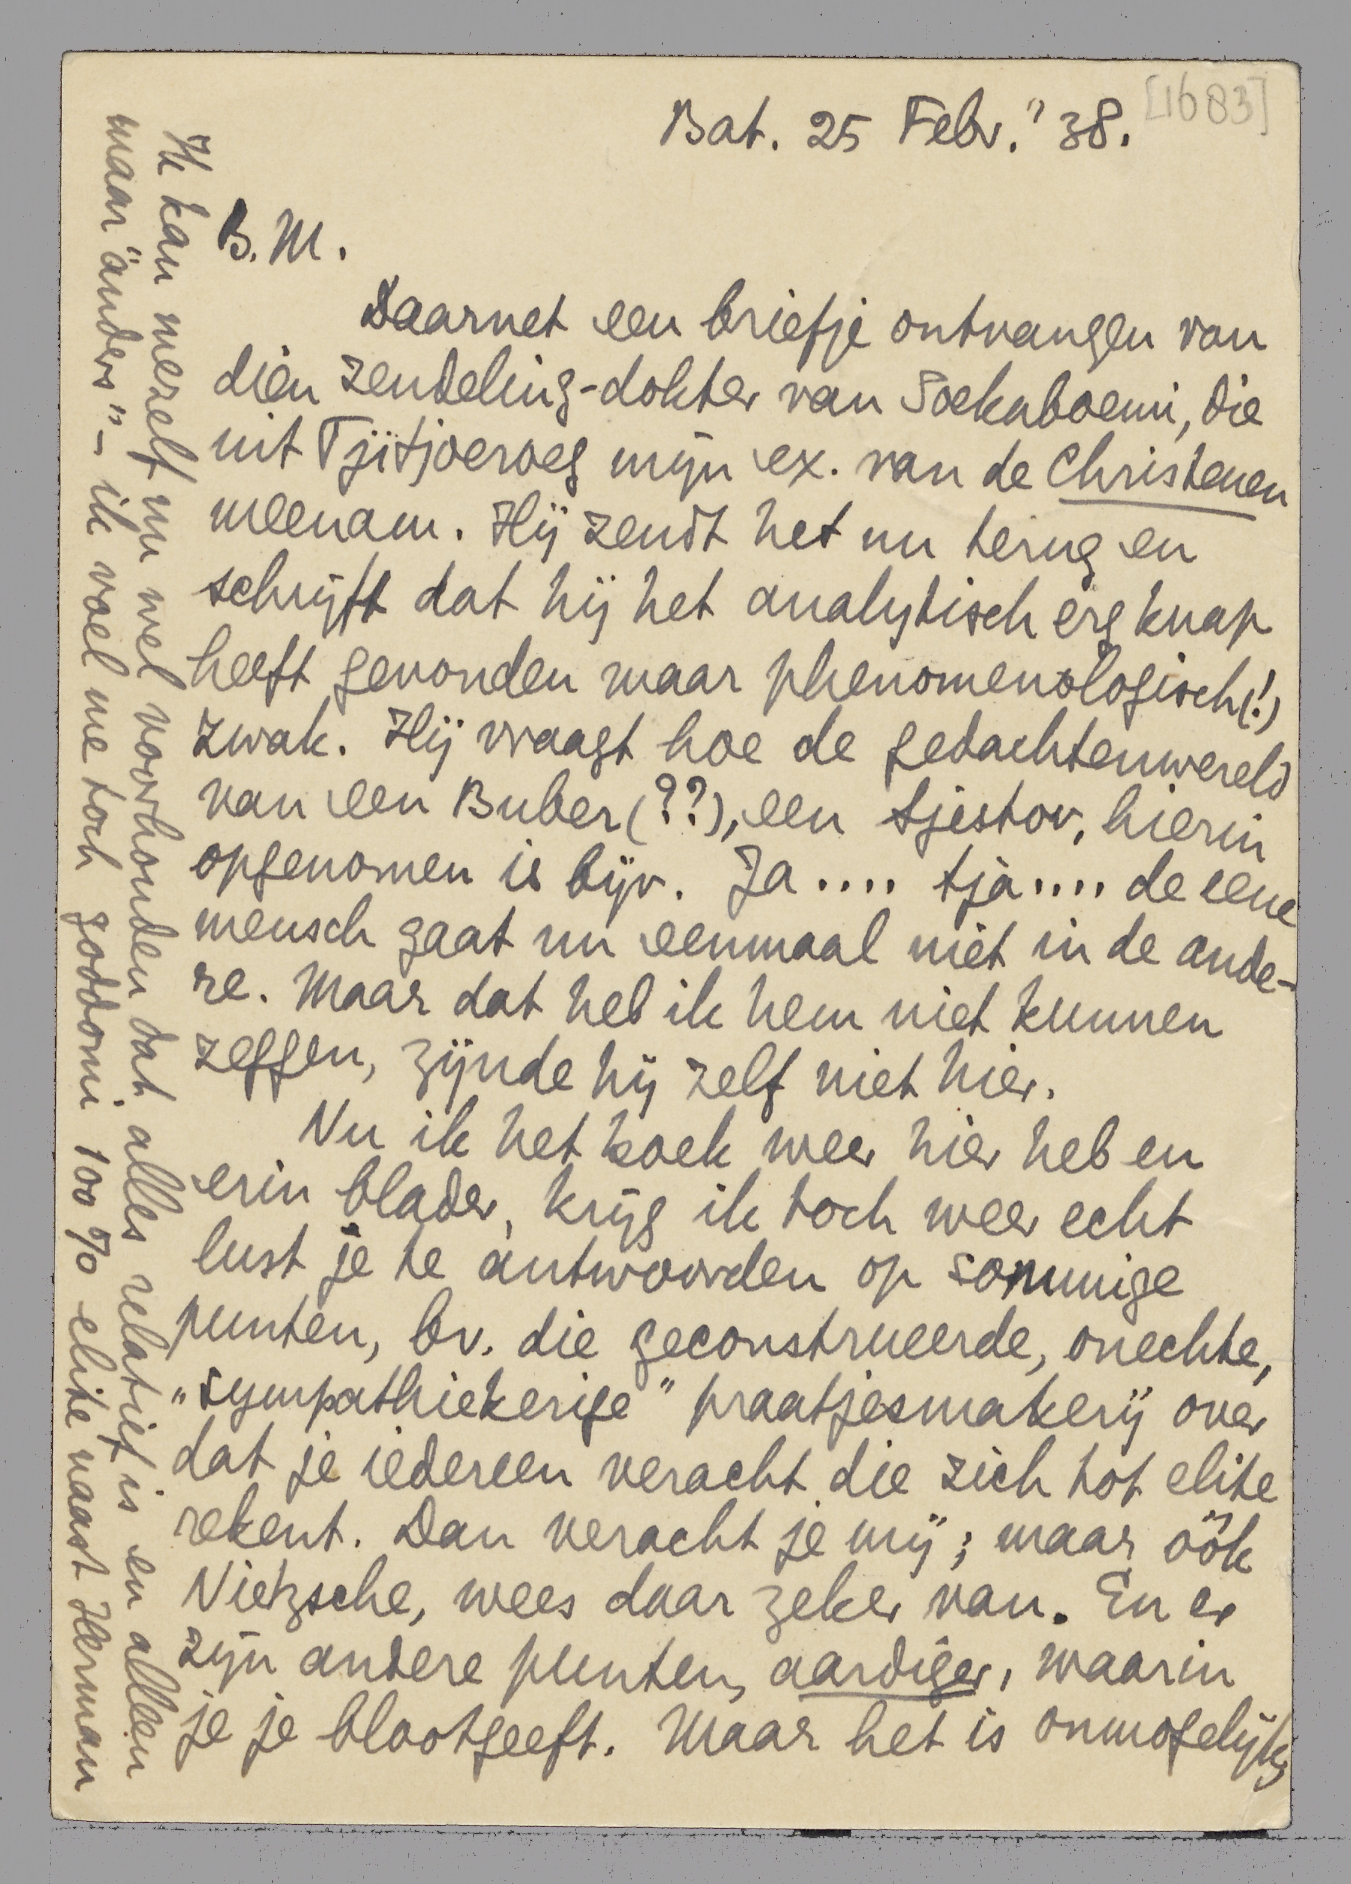 [1683]
Bat. 25 Febr. "38.
B. M.
Daarnet een briefje ontvangen van
dien zendeling-dokter van Soekaboemi, die
uit Tjitjoeroeg mijn ex. van de Christenen
meenam. Hij zendt het nu terug en
schrijft dat hij het analytisch erg knap
heeft gevonden maar phenomenologisch (!)
zwak. Hij vraagt hoe de gedachtenwereld
van een Buber (??), een Sjestov, hierin
opgenomen is bijv. Ja .... tja .... de eene
mensch gaat nu eenmaal niet in de ande-
re. Maar dat heb ik hem niet kunnen
zeggen, zijnde hij zelf niet hier.
Nu ik het boek weer hier heb en
erin blader, krijg ik toch weer echt
lust je te antwoorden op sommige
punten, bv. die geconstrueerde, onechte,
„sympathiekerige" praatjesmakerij over
dat je iedereen veracht die zich tot elite
rekent. Dan veracht je mij; maar óók
Nietzsche, wees daar zeker van. En er
zijn andere punten, aardiger, waarin
je je blootgeeft. Maar het is onmogelijk,
Ik kan mezelf nu wel voorhouden dat alles relatief is en alleen
maar "anders" – ik voel me toch goddomi 100 % elite naast Herman